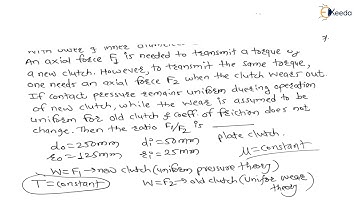 Ekeeda
with outer & inner diameter
7.
An axial force F1 is needed to transmit a torque by
a new clutch. However, to transmit the same torque,
one needs an axial force F2 when the clutch wears out.
If contact pressure remains uniform during operation
of new clutch, while the wear is assumed to be
uniform for old clutch & coeff of friction does not
change. Then the ratio F1/F2 is
plate clutch.
do=250mm di=50mm
μ=constant
ro=125mm ri=25mm
W=F1→new clutch(uniform pressure theory)
T=constant W=F2→old clutch(uniform wear
theory)